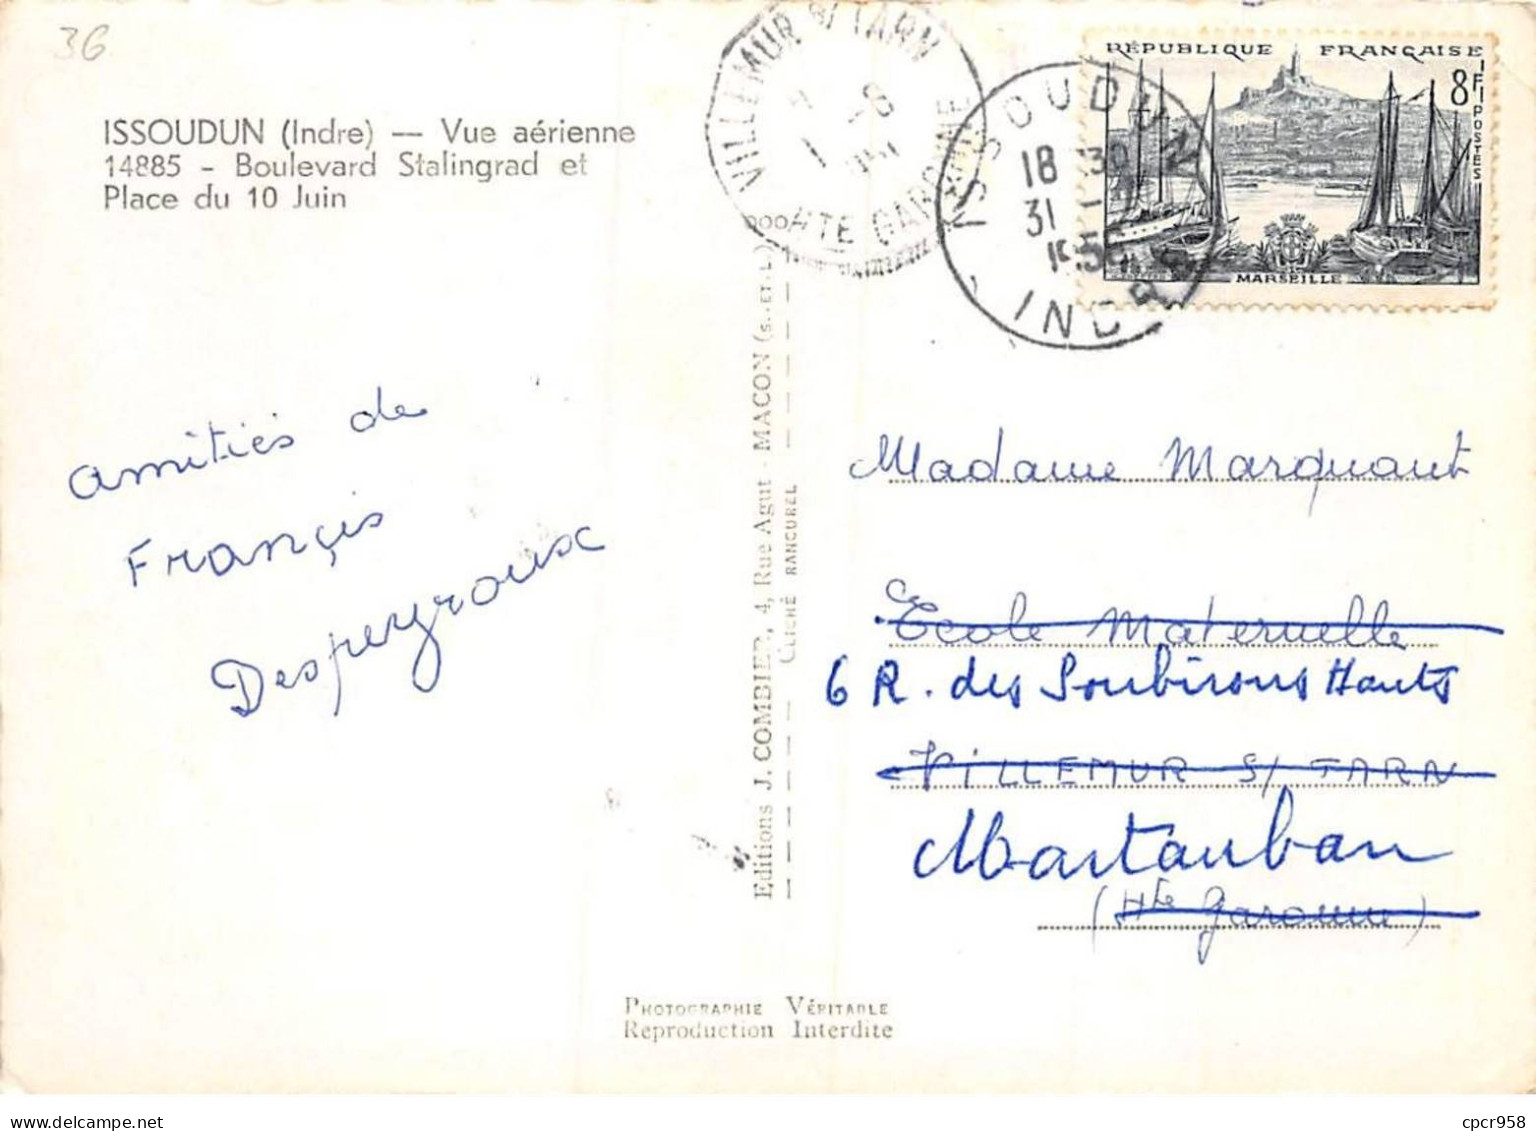 36
ISSOUDUN (Indre) — Vue aérienne
14885 - Boulevard Stalingrad et
Place du 10 Juin
VILLEMUR S/ TARN
HTE GARONNE
ISSOUDUN
18 30
31
1956
INDRE
RÉPUBLIQUE FRANÇAISE
8F
POSTES
MARSEILLE
amitiés de
Françis
Despeyroux
Editions J. COMBIER, 4, Rue Agut - MACON (S.-et-L.)
CLICHÉ RANCUREL
Madame Marquant
Ecole Maternelle
6 R. des Soubirous Hauts
VILLEMUR S/ TARN
Montauban
(Hte Garonne)
PHOTOGRAPHIE VÉRITABLE
Reproduction Interdite
cpcr958